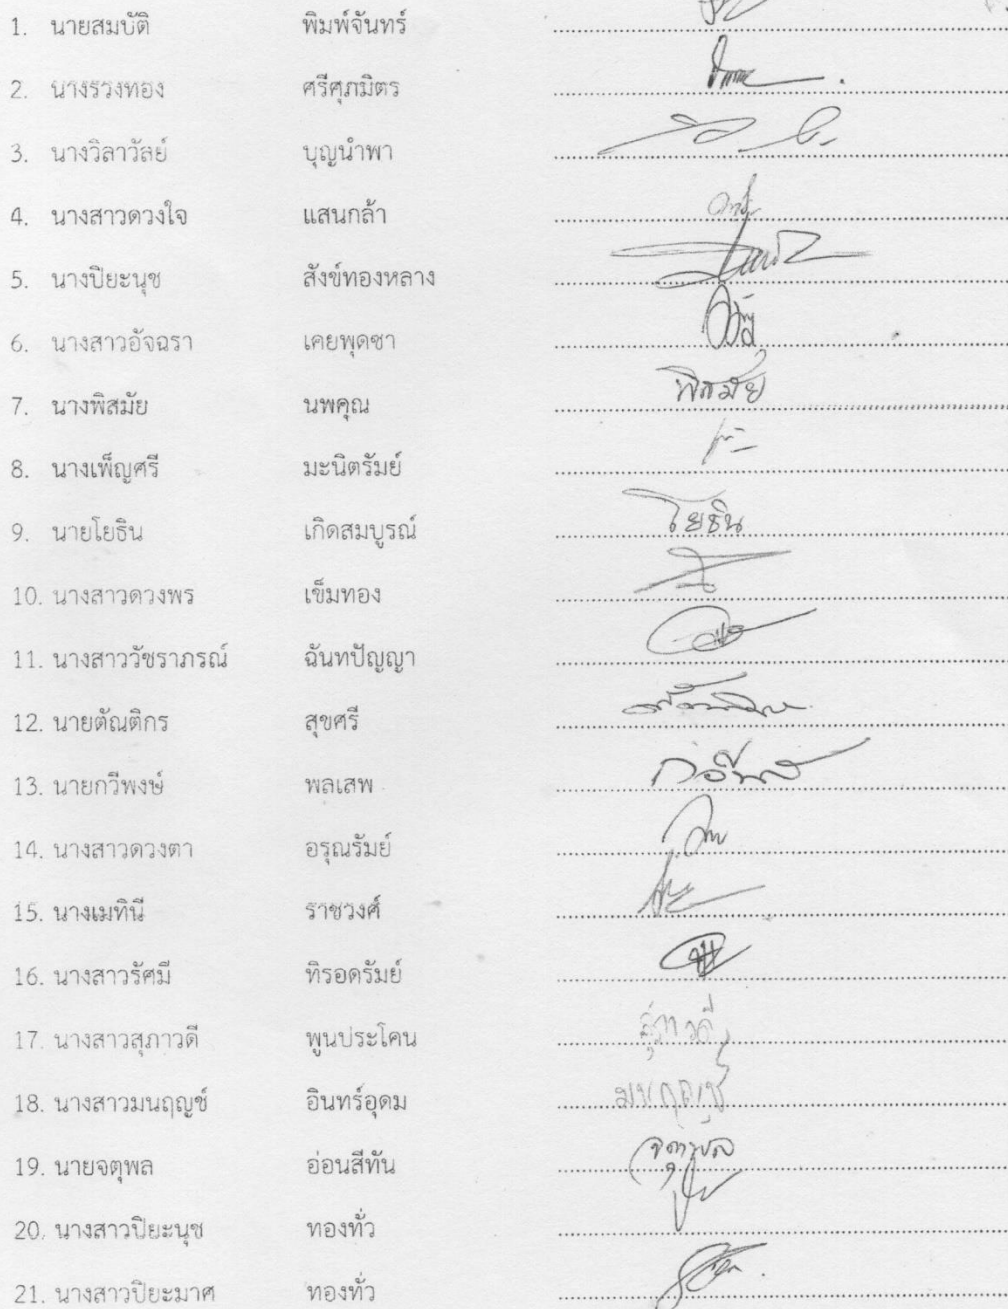 1. นายสมบัติ พิมพ์จันทร์
2. นางรวงทอง ศรีศุภมิตร
3. นางวิลาวัลย์ บุญนำพา
4. นางสาวดวงใจ แสนกล้า
5. นางปิยะนุช สังข์ทองหลาง
6. นางสาวอัจฉรา เคยพุดซา
7. นางพิสมัย นพคุณ พิสมัย
8. นางเพ็ญศรี มะนิตรัมย์
9. นายโยธิน เกิดสมบูรณ์ โยธิน
10. นางสาวดวงพร เข็มทอง
11. นางสาววัชราภรณ์ ฉันทปัญญา
12. นายตัณติกร สุขศรี
13. นายกวีพงษ์ พลเสพ
14. นางสาวดวงตา อรุณรัมย์
15. นางเมทินี ราชวงศ์
16. นางสาวรัศมี ทิรอดรัมย์
17. นางสาวสุภาวดี พูนประโคน สุภาวดี
18. นางสาวมนฤญช์ อินทร์อุดม มนฤญช์
19. นายจตุพล อ่อนสีทัน จตุพล
20. นางสาวปิยะนุช ทองทั่ว
21. นางสาวปิยะมาศ ทองทั่ว